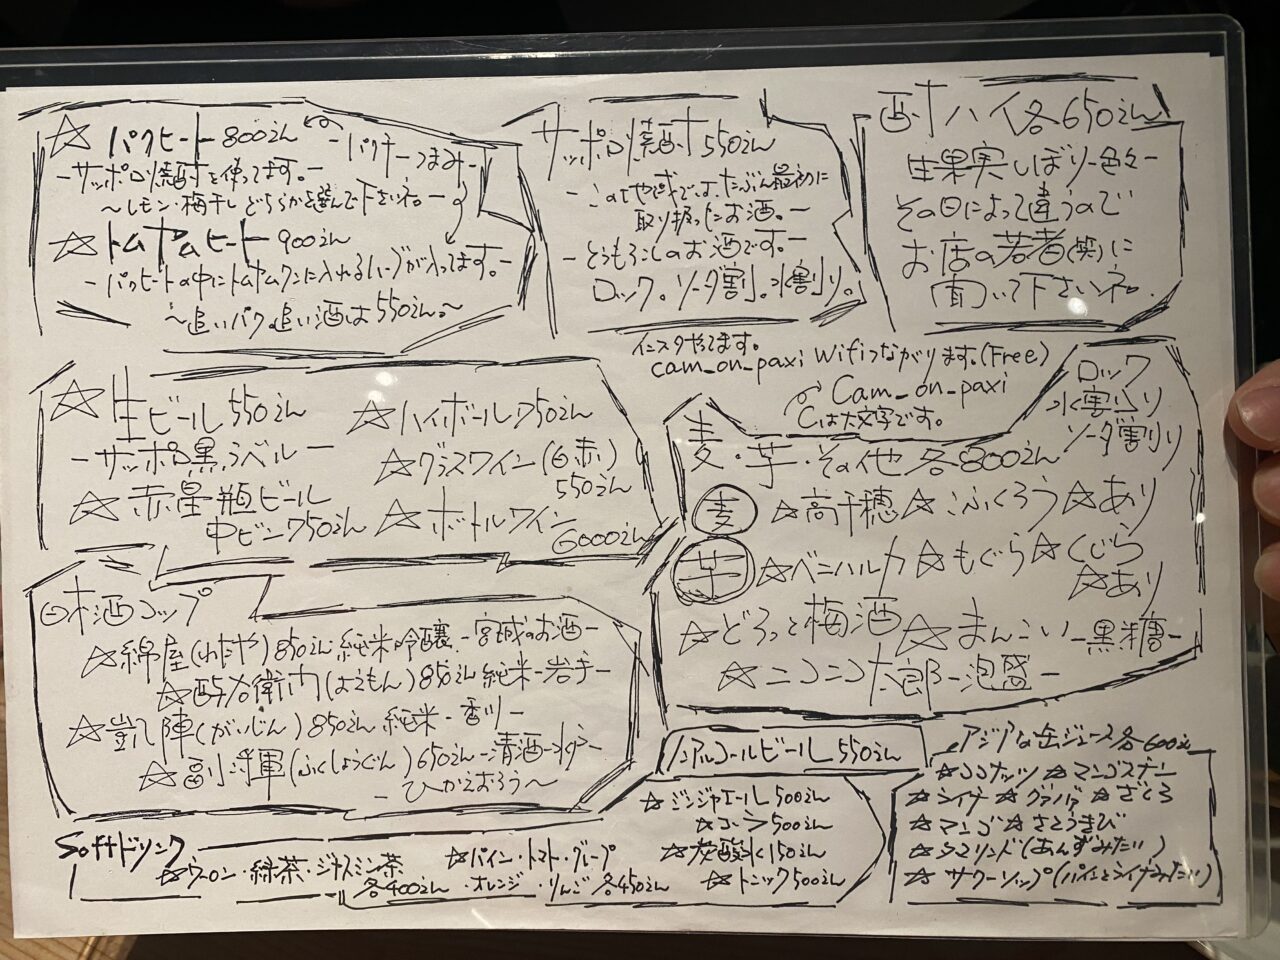 ☆パクヒート 800えん
-パクチーつまみ-
-サッポロ焼酎を使ってます。-
~レモン・梅干し どちらかを選んで下さいネ。-
☆トムヤムヒート 900えん
-パクヒートの中にトムヤムクンに入れるハーブが入ってます。-
~追いパク。追い酒は550えん。~
サッポロ焼酎 550えん
取り扱ったお酒。-
-とうもろこしのお酒です。-
ロック。ソーダ割。水割り。
酎ハイ各650えん
生果実しぼり-色々-
その日によって違うので
お店の若者(笑)に
聞いて下さいネ。
インスタやってます。
cam_on_paxi
Wifiつながります。(Free)
Cam_on_paxi
Cは大文字です。
☆生ビール 550えん
-サッポロ黒ラベル-
☆赤星瓶ビール
中ビン750えん
☆ハイボール750えん
☆グラスワイン(白赤)
550えん
☆ボトルワイン
6000えん
ロック
水割り
ソーダ割り
麦・芋・その他 各800えん
麦 ☆高千穂 ☆こふくろう ☆あり
芋 ☆ベニハルカ ☆もぐら ☆くじら
☆あり
☆どろっと梅酒 ☆まんこい-黒糖-
☆ニコニコ太郎-泡盛-
日本酒コップ
☆綿屋(わたや)850えん 純米吟醸-宮城のお酒-
☆酉与右衛門(よえもん)850えん 純米-岩手-
☆凱陣(がいじん)850えん 純米-香川-
☆副将軍(ふくしょうぐん)650えん-清酒-水戸-
-ひかえおろう~
ノンアルコールビール 550えん
Softドリンク
☆ウーロン・緑茶・ジャスミン茶
各400えん
☆パイン・トマト・グレープ
・オレンジ・りんご 各450えん
☆ジンジャエール 500えん
☆コーラ 500えん
☆炭酸水 150えん
☆トニック 500えん
アジアな缶ジュース各600えん
☆ココナッツ ☆マンゴスチン
☆ライチ ☆グァバ ☆ざくろ
☆マンゴ ☆さとうきび
☆タマリンド(あんずみたい)
☆サワーソップ(パインとライチみたい)